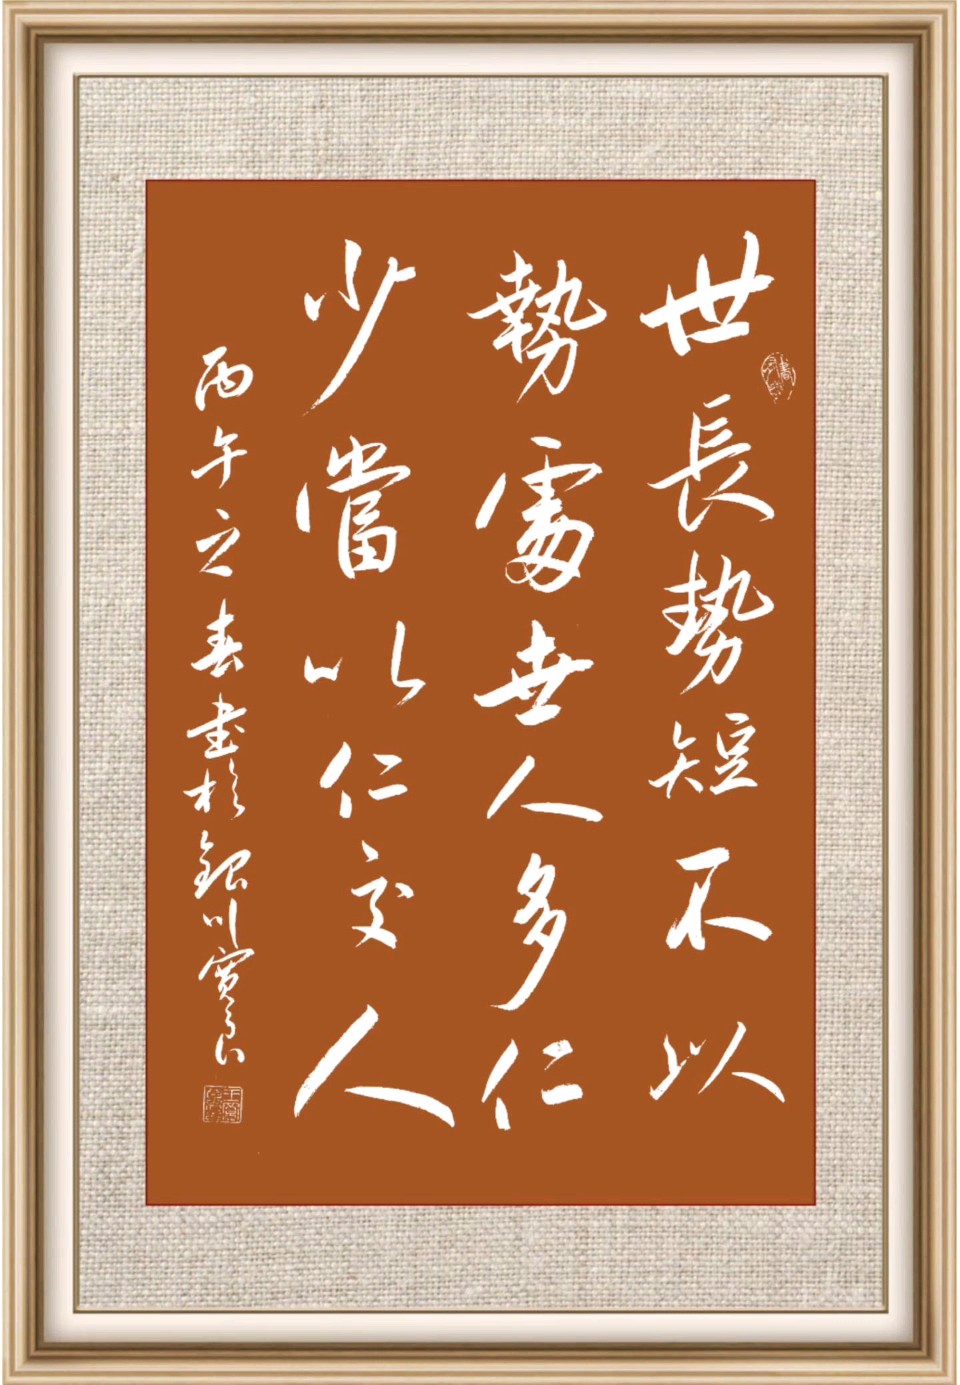 世長勢短不以
勢處世人多仁
少當以仁交人
丙午之春書於銀川寶良